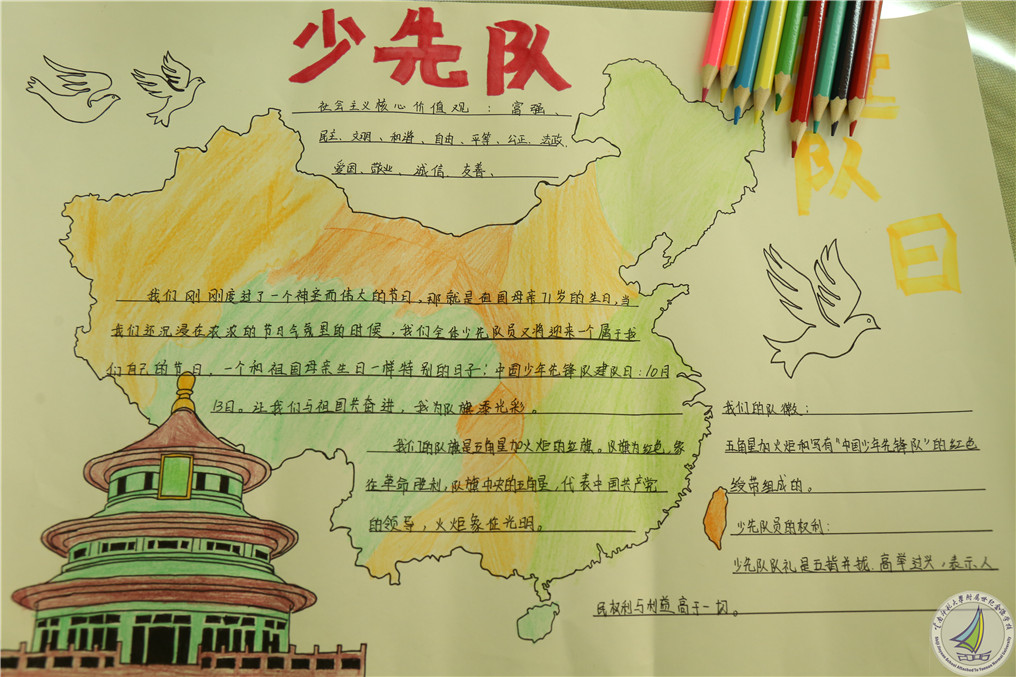 少先队
建队日
社会主义核心价值观：富强、
民主、文明、和谐、自由、平等、公正、法政、
爱国、敬业、诚信、友善、
我们刚刚度过了一个神圣而伟大的节日，那就是祖国母亲71岁的生日，当
我们还沉浸在浓浓的节日气氛里的时候，我们全体少先队员又将迎来一个属于我
们自己的节日，一个和祖国母亲生日一样特别的日子：中国少年先锋队建队日：10月
13日。让我们与祖国共奋进，我为队旗添光彩。
我们的队旗是五角星加火炬的红旗。队旗为红色，象
在革命胜利，队旗中央的五角星，代表中国共产党
的领导，火炬象征光明。
我们的队徽：
五角星加火炬和写有"中国少年先锋队"的红色
绶带组成的。
少先队员的权利：
少先队队礼是五指并拢，高举过头，表示人
民权利与利益高于一切。